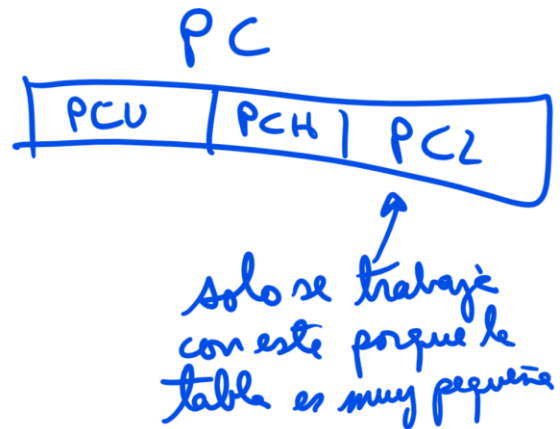 PC
PCU PCH PCL
solo se trabaja
con este porque la
tabla es muy pequeña